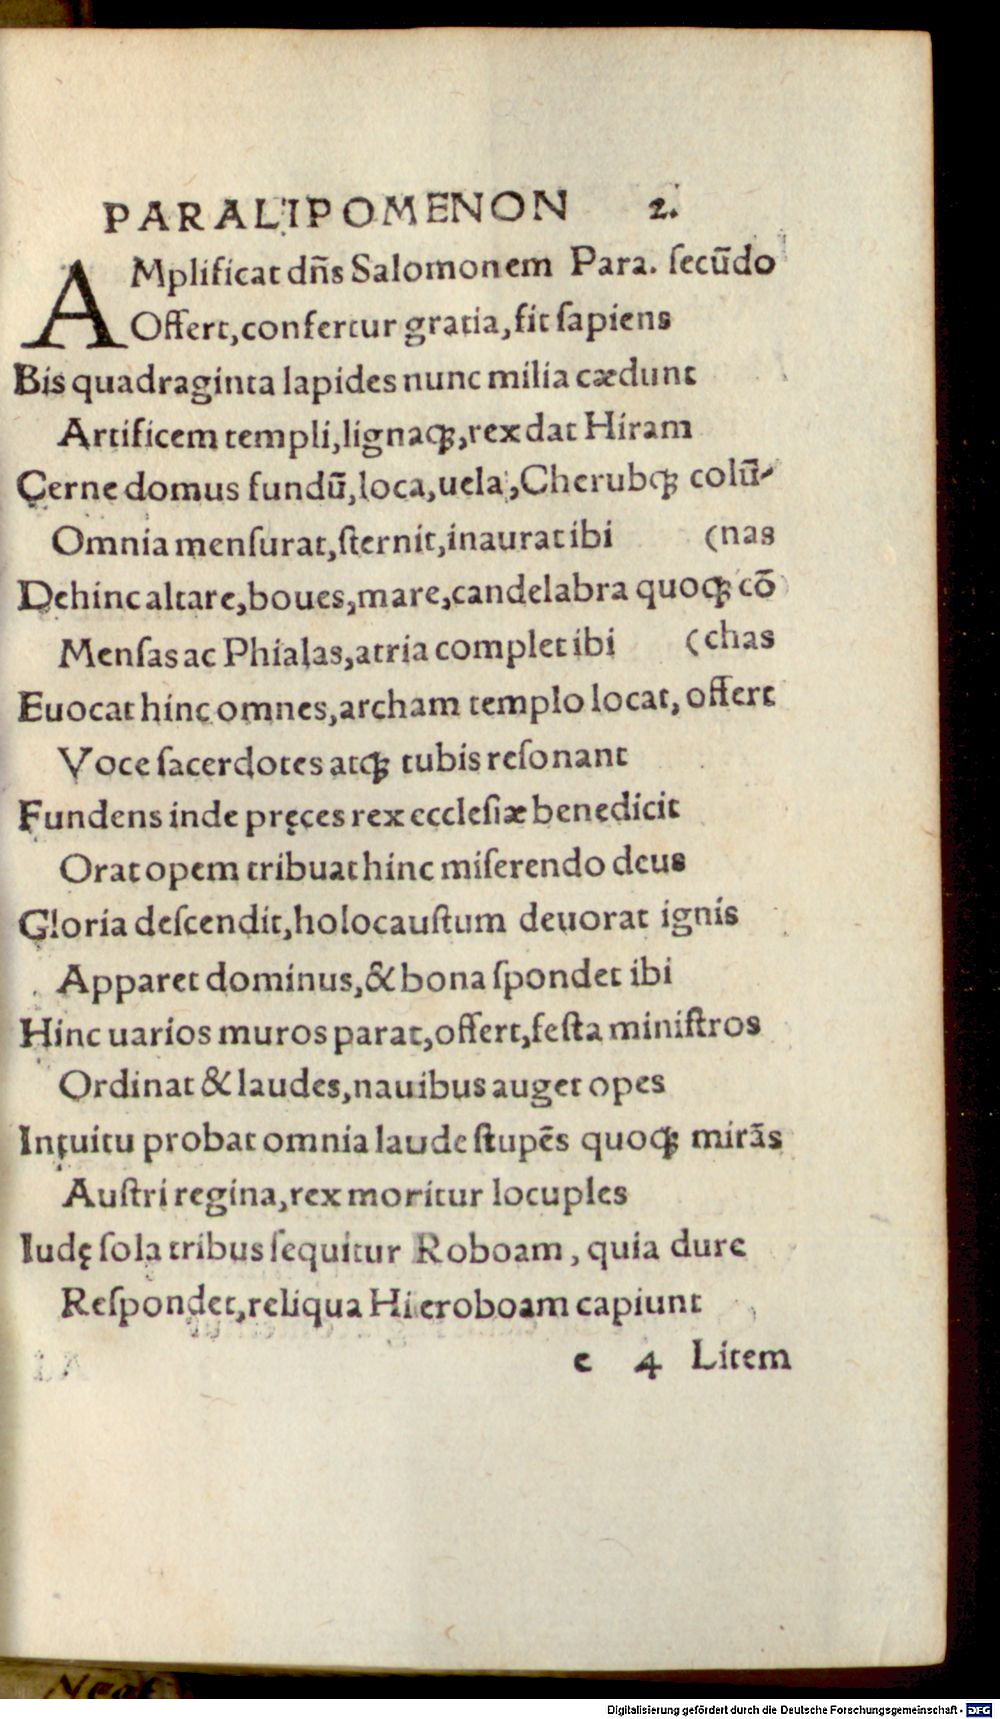 PARALIPOMENON 2.
AMplificat dñs Salomonem Para. ſecũdo
Offert,confertur gratia,fit ſapiens
Bis quadraginta lapides nunc milia cædunt
Artificem templi,lignaqꝫ,rex dat Hiram
Cerne domus fundũ,loca,uela,Cherubqꝫ colũ-
Omnia menſurat,ſternit,inaurat ibi (nas
Dehinc altare,boues,mare,candelabra quoqꝫ cõ
Menſas ac Phialas,atria complet ibi (chas
Euocat hinc omnes,archam templo locat, offert
Voce ſacerdotes atqꝫ tubis reſonant
Fundens inde pręces rex eccleſiæ benedicit
Orat opem tribuat hinc miſerendo deus
Gloria deſcendit,holocauſtum deuorat ignis
Apparet dominus,& bona ſpondet ibi
Hinc uarios muros parat,offert,feſta miniſtros
Ordinat & laudes,nauibus auget opes
Intuitu probat omnia laude ſtupẽs quoqꝫ mirãs
Auſtri regina,rex moritur locuples
Iudę ſola tribus ſequitur Roboam, quia dure
Reſpondet,reliqua Hieroboam capiunt
c 4 Litem
Digitalisierung gefördert durch die Deutsche Forschungsgemeinschaft - DFG